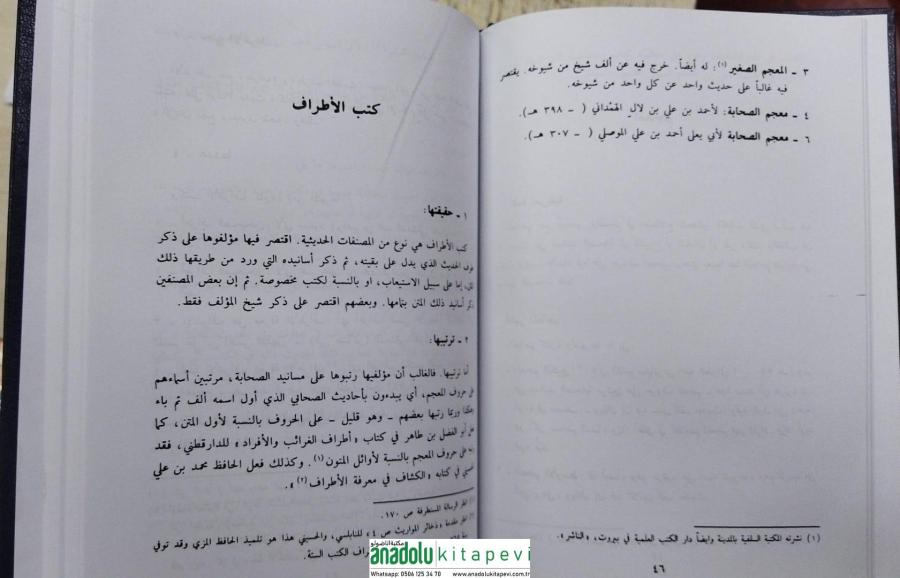 ٣ ـ المعجم الصغير (١): له أيضاً. خرج فيه عن ألف شيخ من شيوخه. يقتصر
فيه غالباً على حديث واحد عن كل واحد من شيوخه.
٤ ـ معجم الصحابة: لأحمد بن علي بن لال الهَمْداني ( ـ ٣٩٨ هـ).
٦ ـ معجم الصحابة لأبي يعلى أحمد بن علي الموصلي ( ـ ٣٠٧ هـ).
(١) نشرته المكتبة السلفية بالمدينة وايضاً دار الكتب العلمية في بيروت، «الناشر».
٤٦
كتب الأطراف
١ ـ حقيقتها:
كتب الأطراف هي نوع من المصنفات الحديثية. اقتصر فيها مؤلفوها على ذكر
طرف الحديث الذي يدل على بقيته، ثم ذكر أسانيده التي ورد من طريقها ذلك
المتن، إما على سبيل الاستيعاب، او بالنسبة لكتب مخصوصة. ثم إن بعض المصنفين
ذكر أسانيد ذلك المتن بتمامها. وبعضهم اقتصر على ذكر شيخ المؤلف فقط.
٢ ـ ترتيبها:
أما ترتيبها. فالغالب أن مؤلفيها رتبوها على مسانيد الصحابة، مرتبين أسماءهم
على حروف المعجم، أي يبدءون بأحاديث الصحابي الذي أول اسمه ألف ثم باء
وهكذا وربما رتبها بعضهم ـ وهو قليل ـ على الحروف بالنسبة لأول المتن، كما
أبو الفضل بن طاهر في كتاب «أطراف الغرائب والأفراد» للدارقطني، فقد
على حروف المعجم بالنسبة لأوائل المتون (١). وكذلك فعل الحافظ محمد بن علي
في كتابه «الكشاف في معرفة الأطراف (٢)».
انظر الرسالة المستطرفة ص ١٧٠.
انظر مقدمة «ذخائر المواريث ص ٤» للنابلسي، والحسيني هذا هو تلميذ الحافظ المزي وقد توفي
الكتب الستة.
مكتبة اناضولو
anadolukitapevi
Whatsapp: 0506 125 34 70 www.anadolukitapevi.com.tr